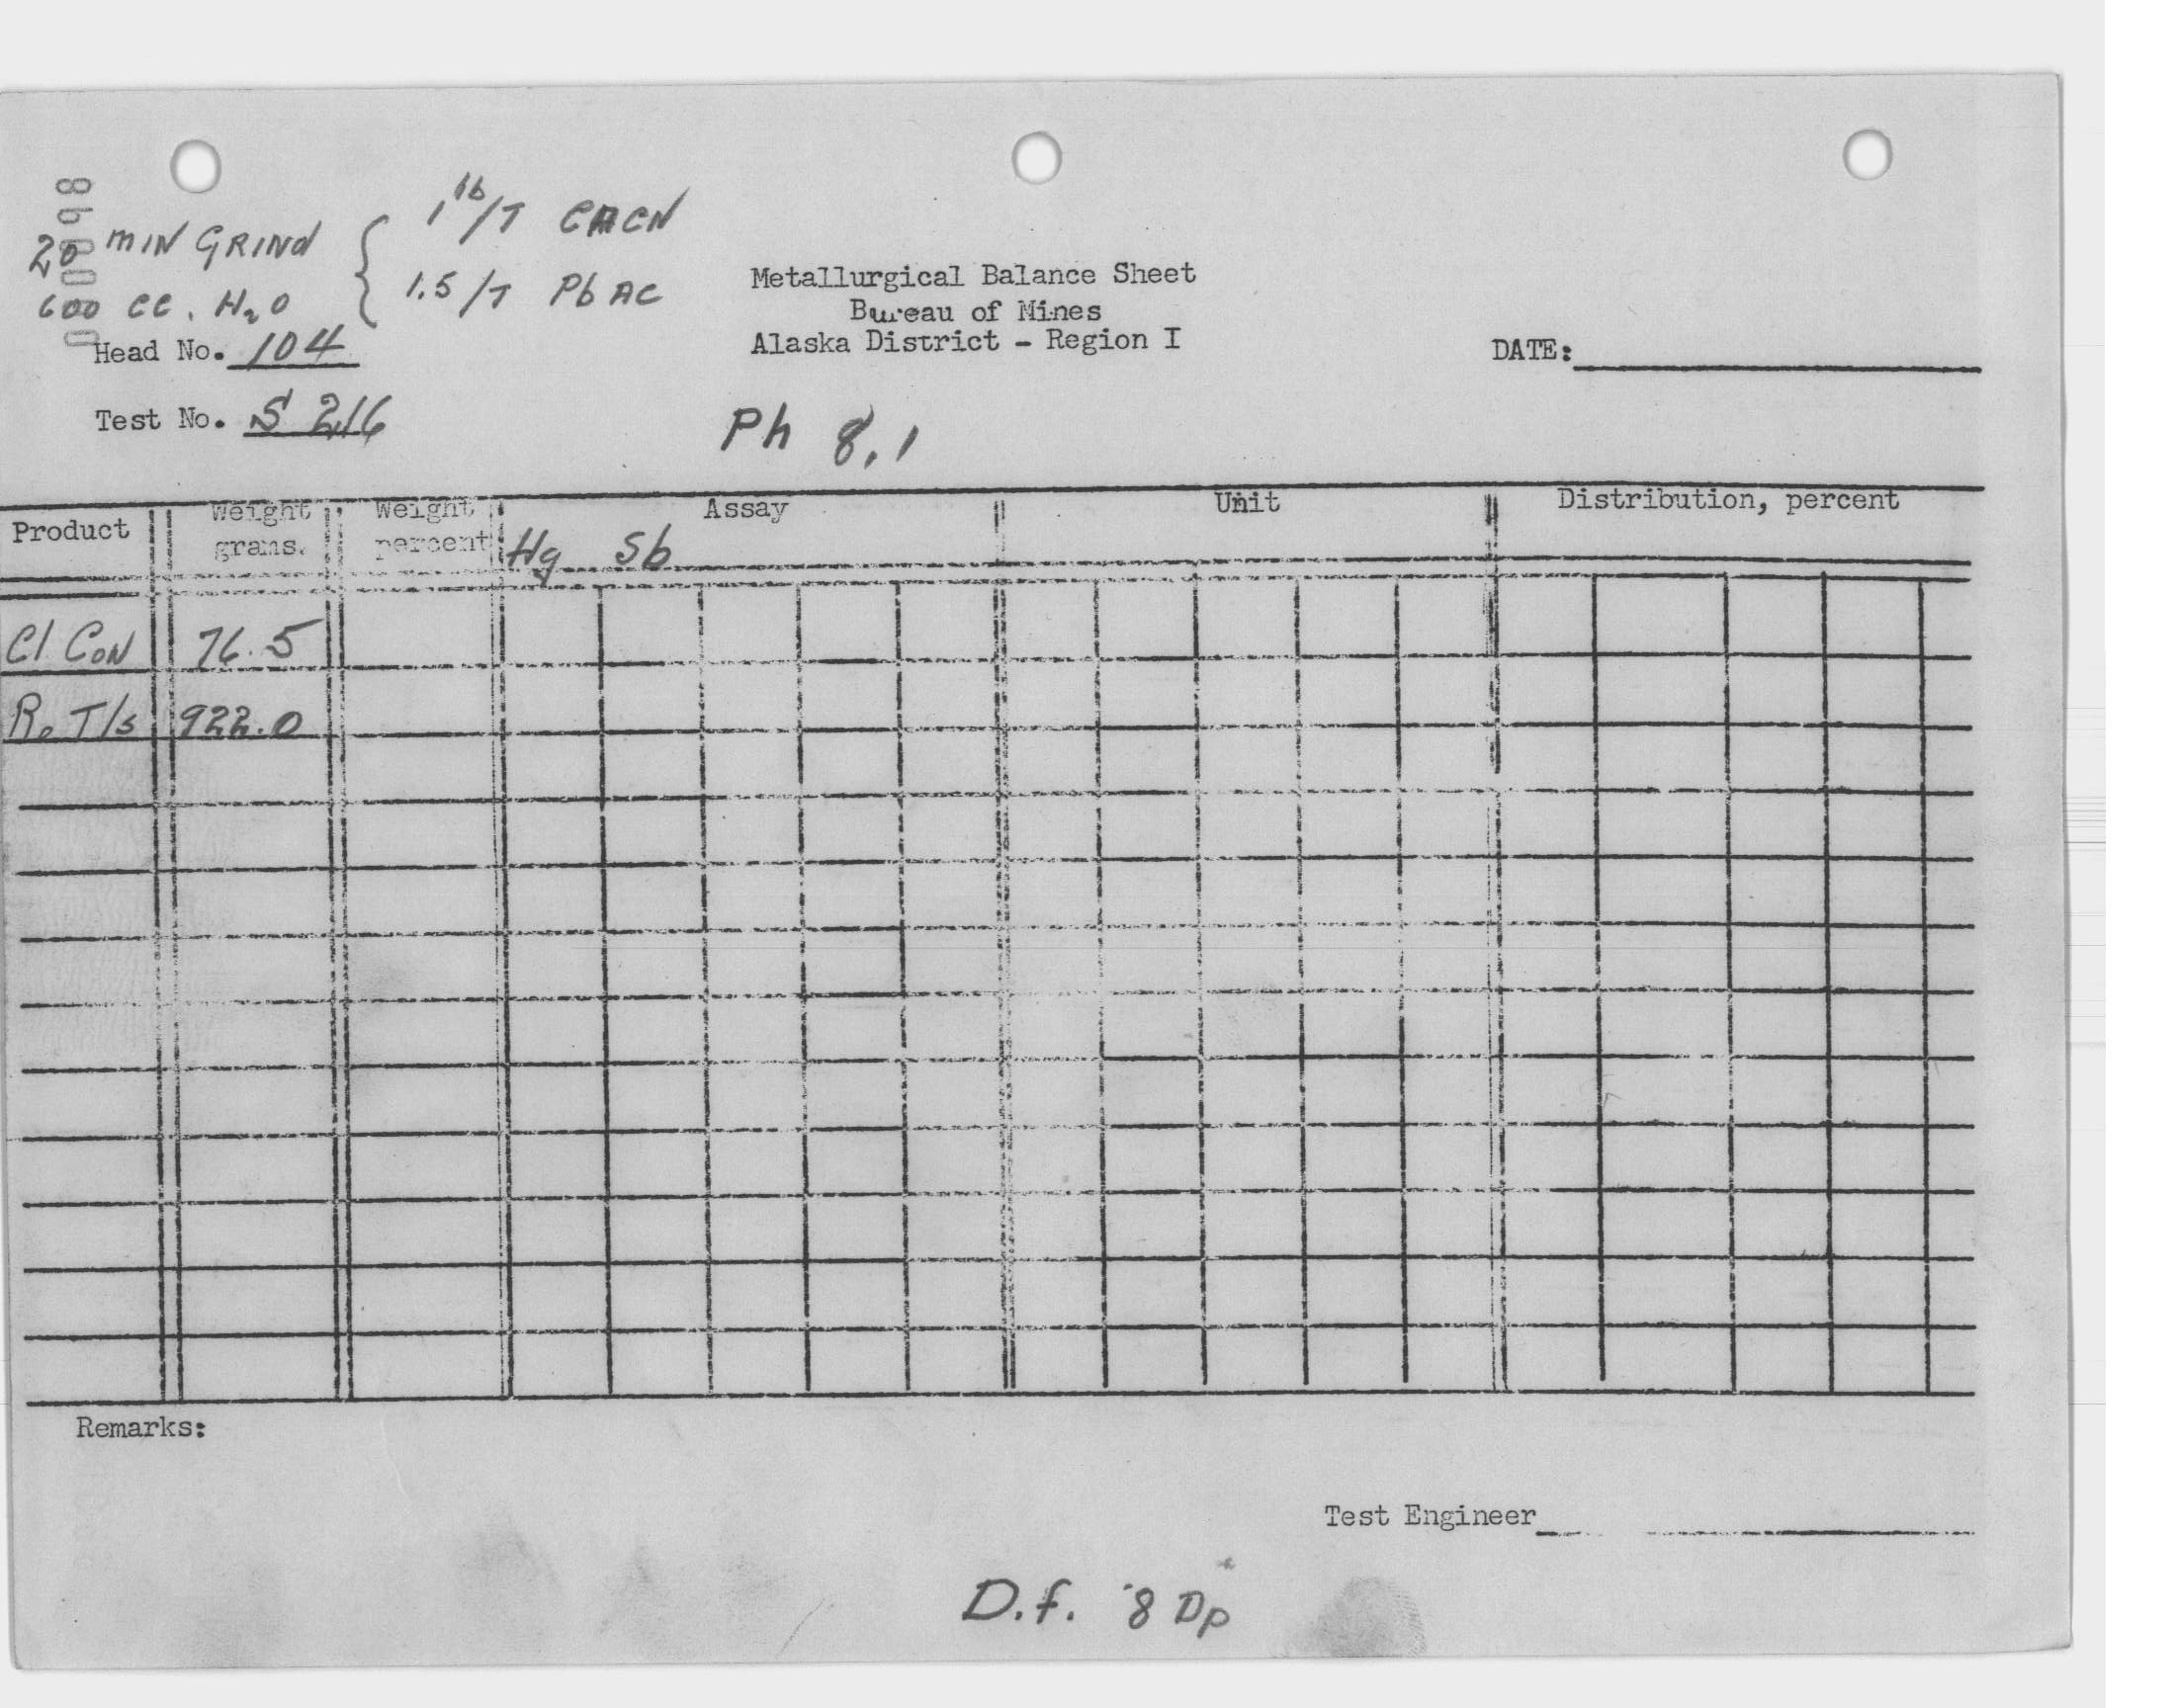 8600000
20 MIN GRINd { 1 lb/T CACN
600 CC. H2O { 1.5/T Pb AC
Metallurgical Balance Sheet
Bureau of Mines
Alaska District - Region I
Head No. 104
DATE:
Test No. S 216
Ph 8.1
Product Weight grams. Weight percent Assay Unit Distribution, percent
Hg Sb
Cl CoN 76.5
Ro T/s 922.0
Remarks:
Test Engineer
D.f. 8 Dp